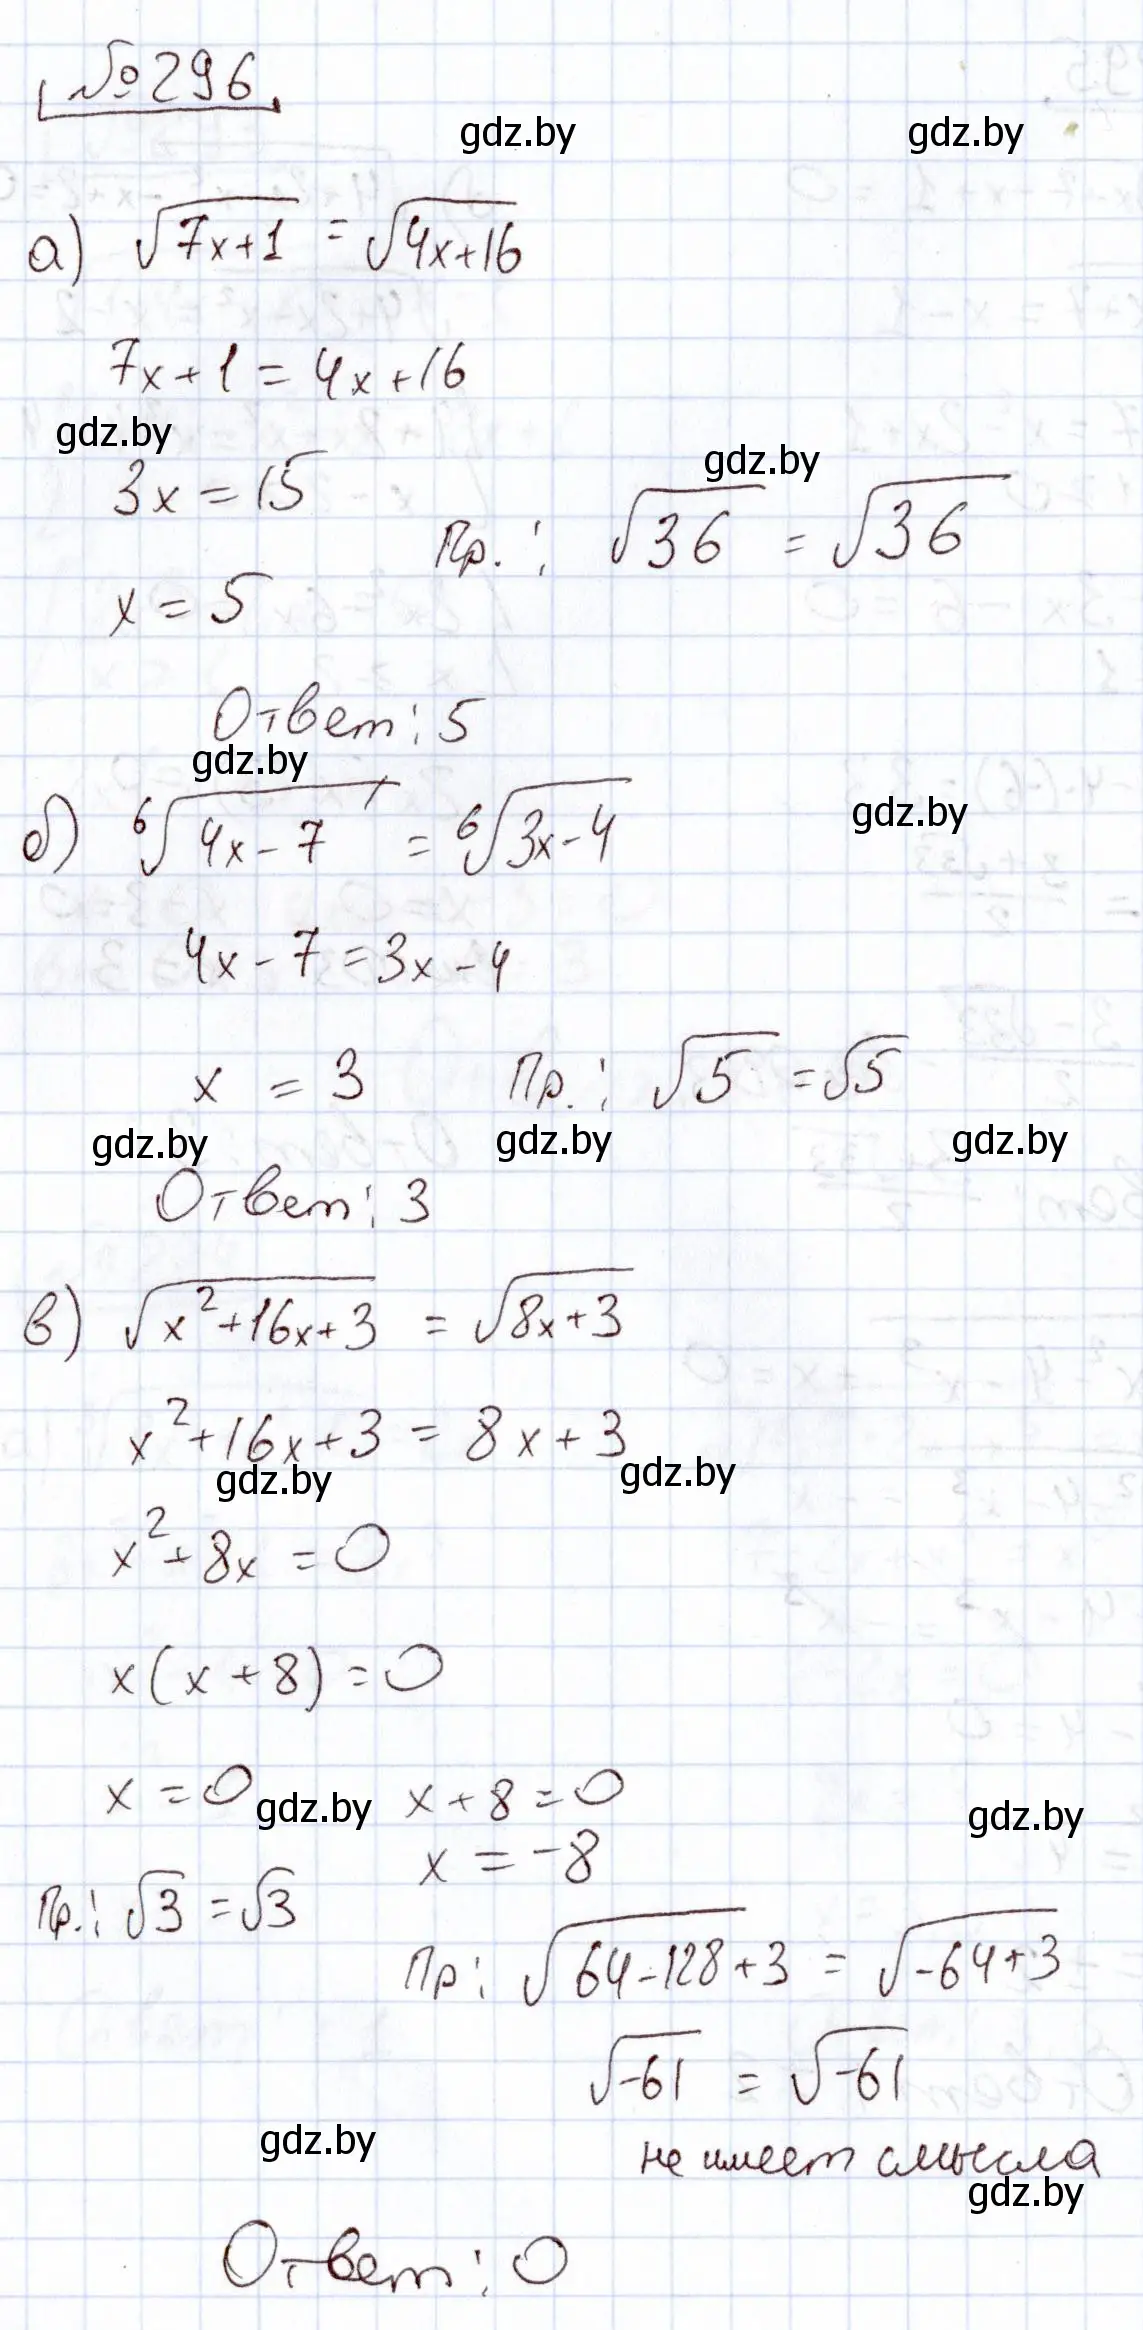 №296
gdz.by gdz.by
а) √7x+1 = √4x+16
7x+1 = 4x+16
gdz.by
3x = 15 gdz.by
Пр.: √36 = √36
x = 5
Ответ: 5
gdz.by
б) ⁶√4x-7 = ⁶√3x-4 gdz.by
4x-7=3x-4
x = 3 Пр.: √5 = √5
gdz.by gdz.by gdz.by
Ответ: 3
в) √x²+16x+3 = √8x+3
x²+16x+3 = 8x+3
gdz.by gdz.by
x²+8x = 0
x(x+8)=0
x=0 gdz.by x+8=0 gdz.by
x = -8
Пр.: √3 = √3
Пр: √64-128+3 = √-64+3
√-61 = √-61
gdz.by
не имеет смысла
gdz.by
Ответ: 0